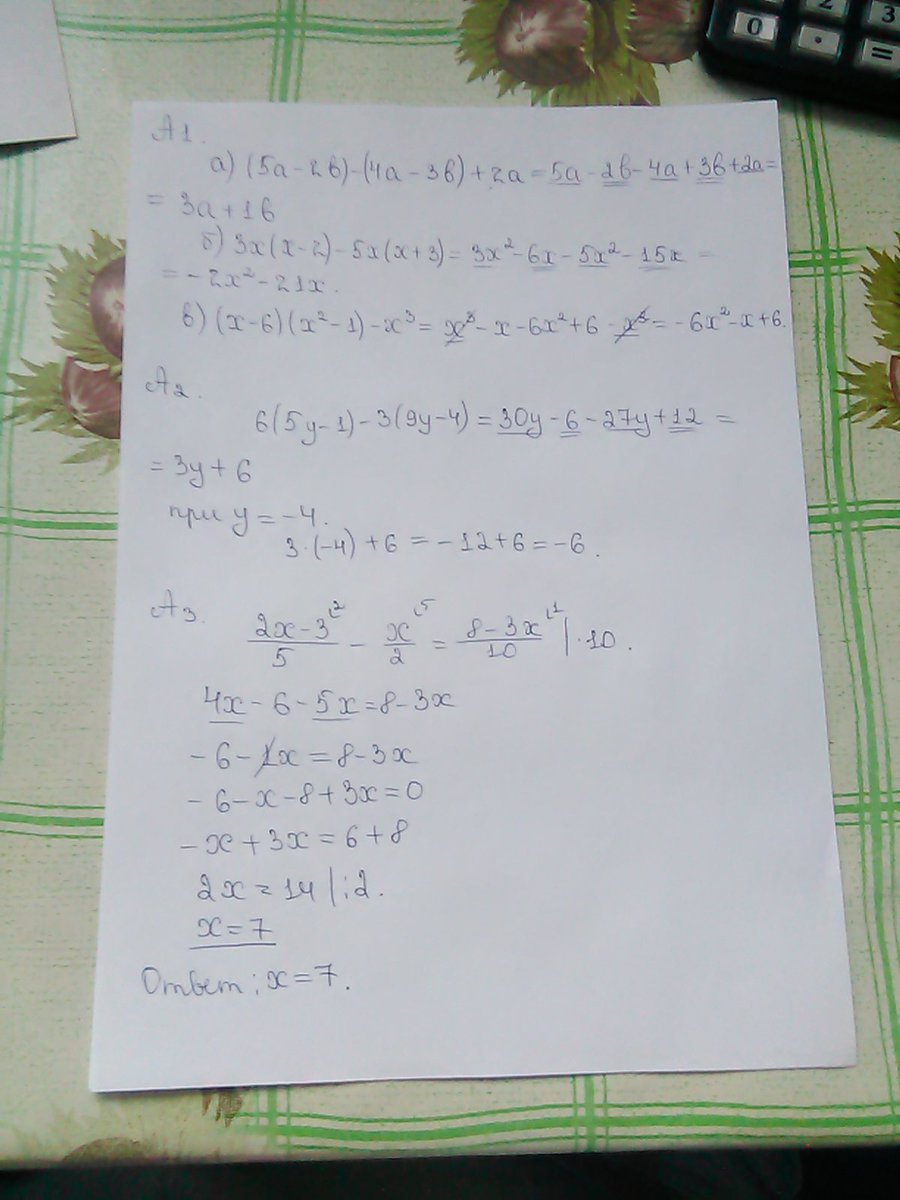 0 2 3
. =
А1.
а) (5а - 2в) - (4а - 3в) + 2а = 5а - 2в - 4а + 3в + 2а =
= 3а + 1в
б) 3x(x - 2) - 5x(x + 3) = 3x² - 6x - 5x² - 15x =
= - 2x² - 21x.
в) (x - 6)(x² - 1) - x³ = x³ - x - 6x² + 6 - x³ = - 6x² - x + 6.
А2.
6(5y - 1) - 3(9y - 4) = 30y - 6 - 27y + 12 =
= 3y + 6
при y = -4.
3·(-4) + 6 = - 12 + 6 = -6.
А3.
(2x - 3)/5 ⁽² - x/2 ⁽⁵ = (8 - 3x)/10 ⁽¹ | · 10.
4x - 6 - 5x = 8 - 3x
- 6 - 1x = 8 - 3x
- 6 - x - 8 + 3x = 0
- x + 3x = 6 + 8
2x = 14 | : 2.
x = 7
Ответ: x = 7.